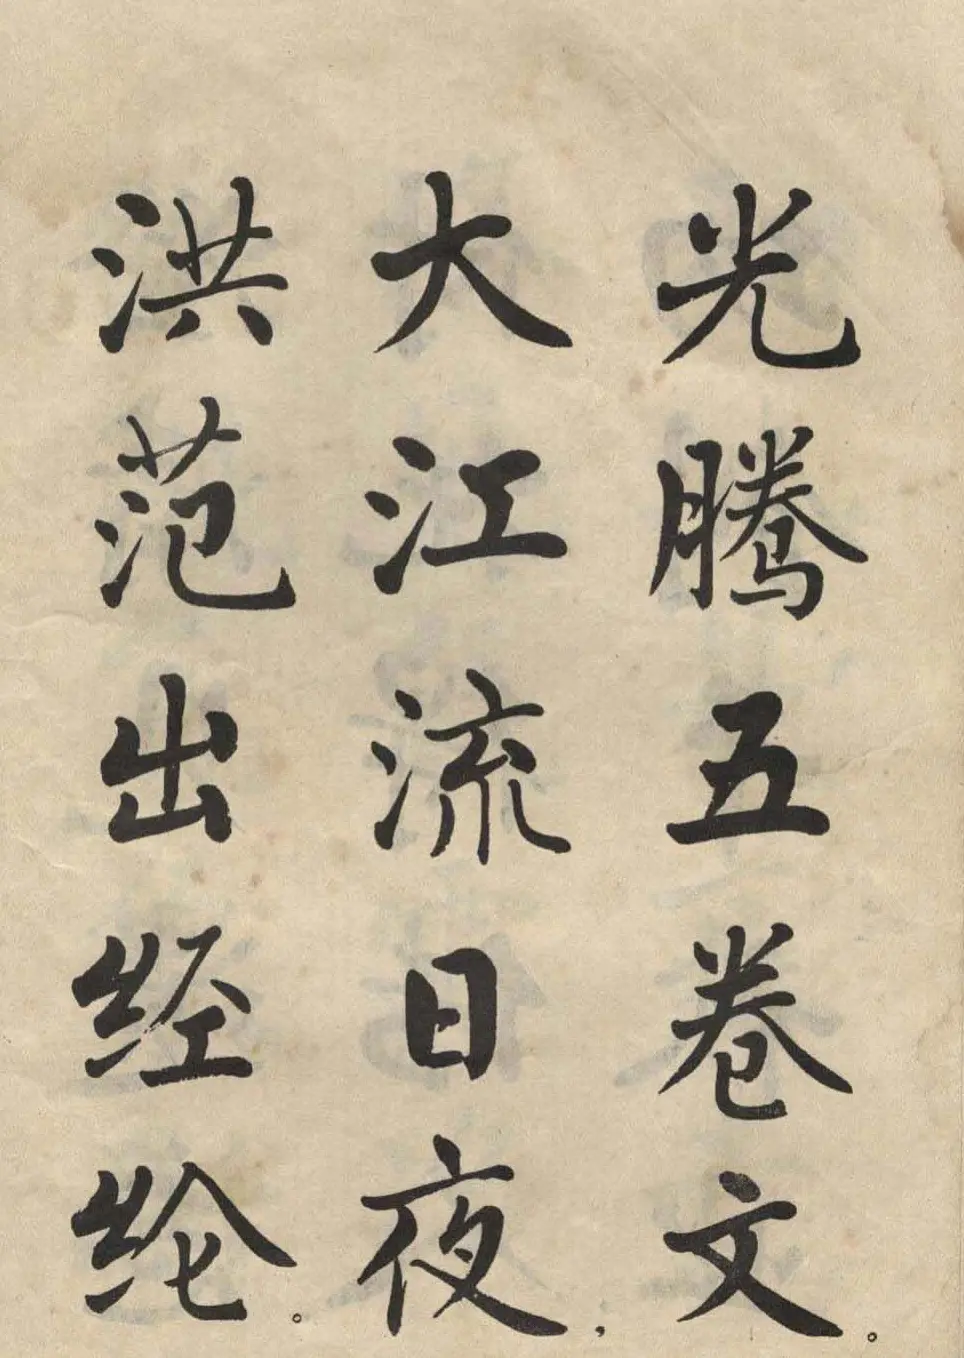 光腾五卷文。
大江流日夜，
洪范出经纶。